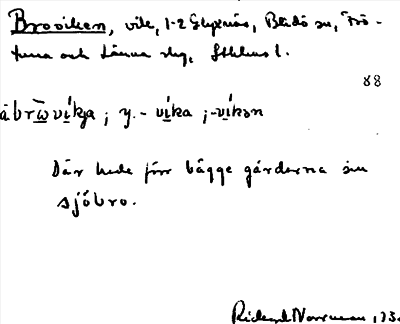 Brooiken, vik, 1-2 Stxnäs, Blidö sn, Frö-
tuna och Länna slg, Sthlms l.
88
åbrωvíkja; y. - víka ; -víkən
Där hade förr bägge gårdarna sin
sjöbro.
Rickard Norrman, 193